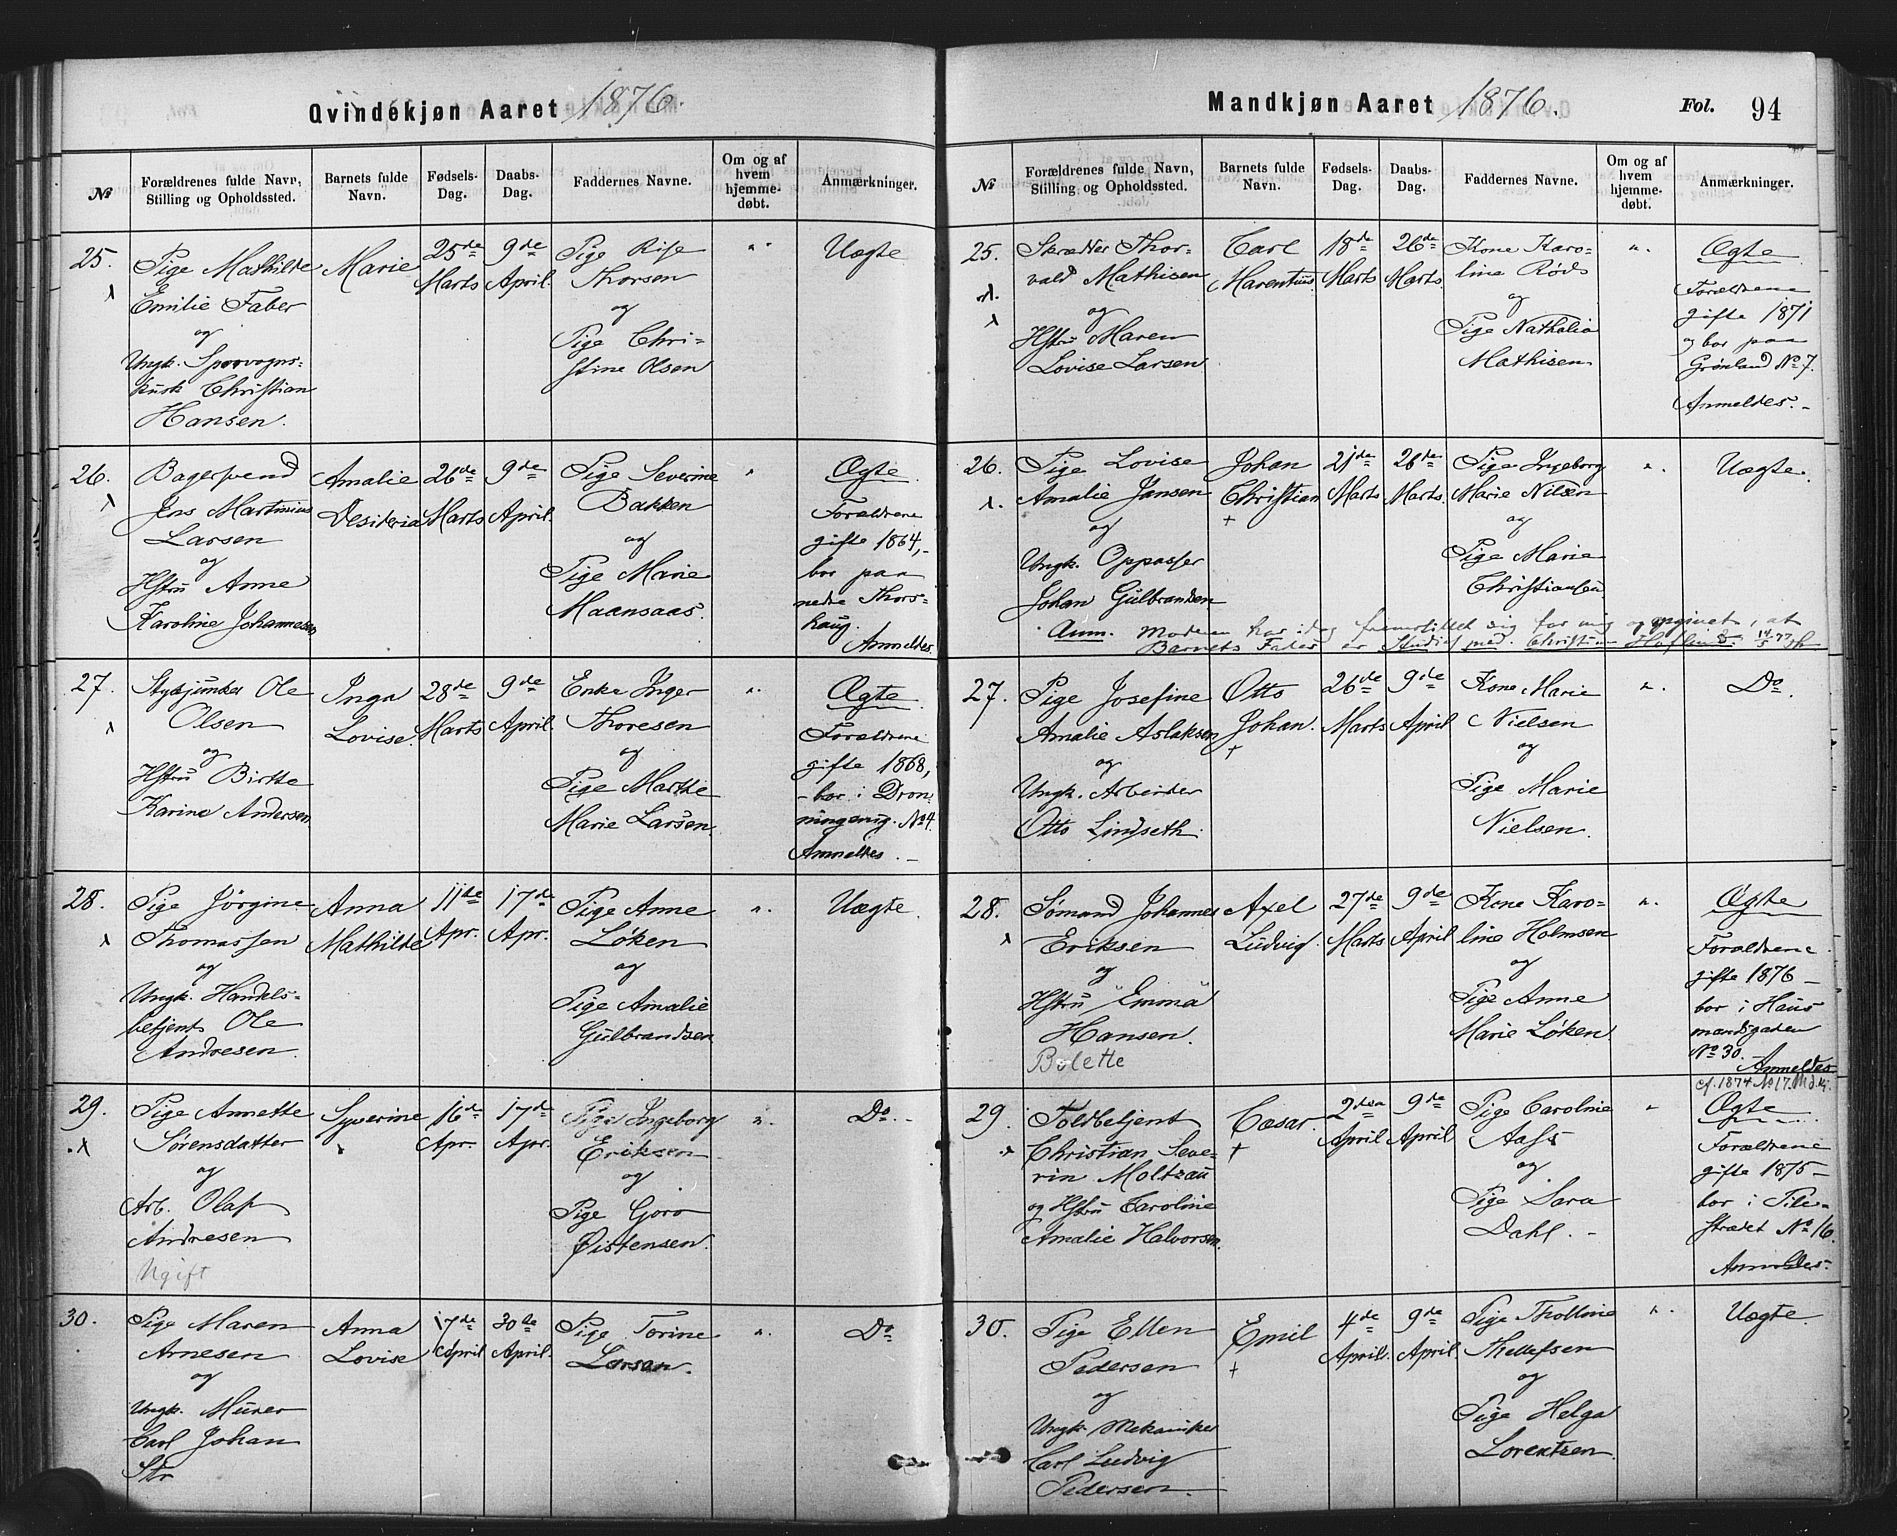 Qvindekjøn Aaret 1876.
№
Forældrenes fulde Navn,
Stilling og Opholdssted.
Barnets fulde
Navn.
Fødsels-
Dag.
Daabs-
Dag.
Faddernes Navne.
Om og af
hvem
hjemme-
døbt.
Anmærkninger.
25.
Pige Mathilde
Emilie Faber
og
Ungk. Sporvogns-
kusk Christian
Hansen.
Marie
25de
Marts
9de
April.
Pige
Thorsen
og
Pige Chri-
stine Olsen
"
Uægte
26.
Bagersvend
Jens Martinius
Larsen
og
Hstru Anne
Karoline Johannesen
Amalie
Desideria
26de
Marts
9de
April.
Pige Severine
Bakken
og
Pige Marie
Maansaas.
"
Ægte.
Forældrene
gifte 1864,-
bor paa
nedre Thors-
haug.
Anmeldes.
27.
Stykjunker Ole
Olsen
og
Hstru Birthe
Karine Andersen
Inga
Lovise.
28de
Marts
9de
April.
Enke Inger
Thoresen
og
Pige Marthe
Marie Larsen.
"
Ægte
Forældrene
gifte 1868,
- bor i Dron-
ningensg. No 4.
Anmeldes. -
28.
Pige Jørgine
Thomassen
og
Ungk. Handels-
betjent Ole
Andresen.
Anna
Mathilde
11de
Apr.
17de
Apr.
Pige Anne
Løken
og
Pige Amalie
Gulbrandsen
"
Uægte.
29.
Pige Annette
Sørensdatter
og
Arb. Olaf
Andresen
Ugift
Syverine
16de
Apr.
17de
Apr.
Pige Ingeborg
Eriksen
og
Pige Goro
Øistensen.
"
Do. -
30.
Pige Maren
Arnesen
og
Ungk. Murer
Carl Johan
Str
Anna
Lovise
17de
April
30de
April.
Pige Torine
Larsen.
"
Do
Mandkjøn Aaret 1876.
Fol. 94
№
Forældrenes fulde Navn,
Stilling og Opholdssted.
Barnets fulde
Navn.
Fødsels-
Dag.
Daabs-
Dag.
Faddernes Navne.
Om og af
hvem
hjemme-
døbt.
Anmærkninger.
25.
Skrædder Thor-
vald Mathisen
og
Hstru Maren
Lovise Larsen
Carl
Marentius
18de
Marts
26de
Marts.
Kone Karo-
line Røds
og
Pige Nathalia
Mathisen
"
Ægte
Forældrene
gifte 1871
og bor paa
Grønland No 7.
Anmeldes. -
26.
Pige Lovise
Amalie Jansen
og
Ungk. Oppasser
Johan Gulbrandsen
Johan
Christian
+
21de
Marts
26de
Marts.
Pige Ingeborg
Marie Nilsen
og
Pige Marie
Christiansen
"
Uægte.
Anm. Moderen har idag fremstillet sig for mig og opgivet, at
Barnets Fader er Christian
27.
Pige Josefine
Amalie Aslaksen
og
Ungk. Arbeider
Otto Lindseth.
Otto
Johan.
+
26de
Marts
9de
April
Kone Marie
Nielsen
og
Pige Marie
Nielsen.
"
Do.
28.
Sømand Johannes
Eriksen
og
Hstru Emma
Hansen.
Bolette
Axel
Ludvig.
27de
Marts
9de
April
Kone Karo-
line Holmsen
og
Pige Anne
Marie Løken.
"
Ægte
Forældrene
gifte 1876 -
bor i Haus
mandsgaden
No 30. -
Anmeldes
29.
Toldbetjent
Christian Seve-
rin Moltzau
og Hstru Caroline
Amalie Halvorsen.
Cæsar.
+
2den
April
9de
April
Pige Caroline
Aass
og
Pige Sara
Dahl. -
"
cf. 1874 No 17.
Ægte
Forældrene
gifte 1875 -
bor i Pile-
strædet No 16.
Anmeldes.
30.
Pige Ellen
Pedersen
og
Ungk Mekaniker
Carl Ludvig
Pedersen.
Emil
+
4de
April.
9de
April.
Pige Tholline
Thellefsen
og
Pige Helga
Lorentzen.
"
Uægte.